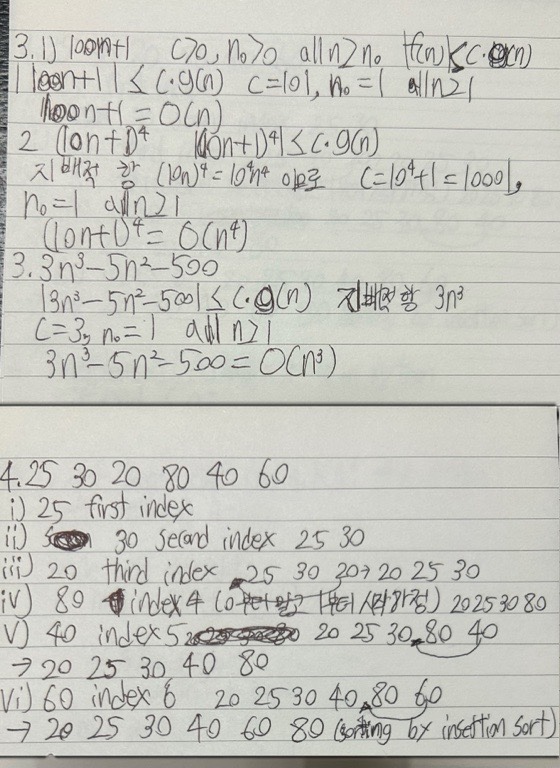 3.1) 100n+1 c>0, n₀>0 all n≥n₀ |f(n)|≤c·g(n)
|100n+1| ≤ c·g(n) c=101, n₀=1 all n≥1
100n+1 = O(n)
2 (10n+1)⁴ |(10n+1)⁴| ≤ c·g(n)
지배적 항 (10n)⁴=10⁴n⁴ 이므로 c=10⁴+1=10001,
n₀=1 all n≥1
(10n+1)⁴ = O(n⁴)
3. 3n³-5n²-500
|3n³-5n²-500| ≤ c·g(n) 지배적항 3n³
c=3, n₀=1 all n≥1
3n³-5n²-500 = O(n³)
4. 25 30 20 80 40 60
i) 25 first index
ii) 30 second index 25 30
iii) 20 third index 25 30 20→20 25 30
iv) 80 index 4 (0부터 말고 1부터 시작 가정) 20 25 30 80
v) 40 index 5 20 25 30 80 40
→ 20 25 30 40 80
vi) 60 index 6 20 25 30 40 80 60
→ 20 25 30 40 60 80 (sorting by insertion sort)